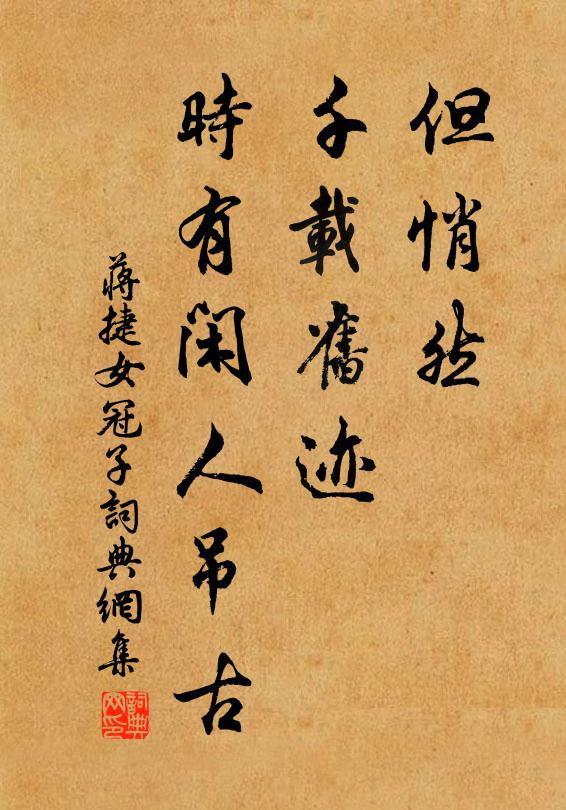 但悄然
千載舊迹
時有閑人吊古
蔣捷女冠子詞典網集
詞典网印